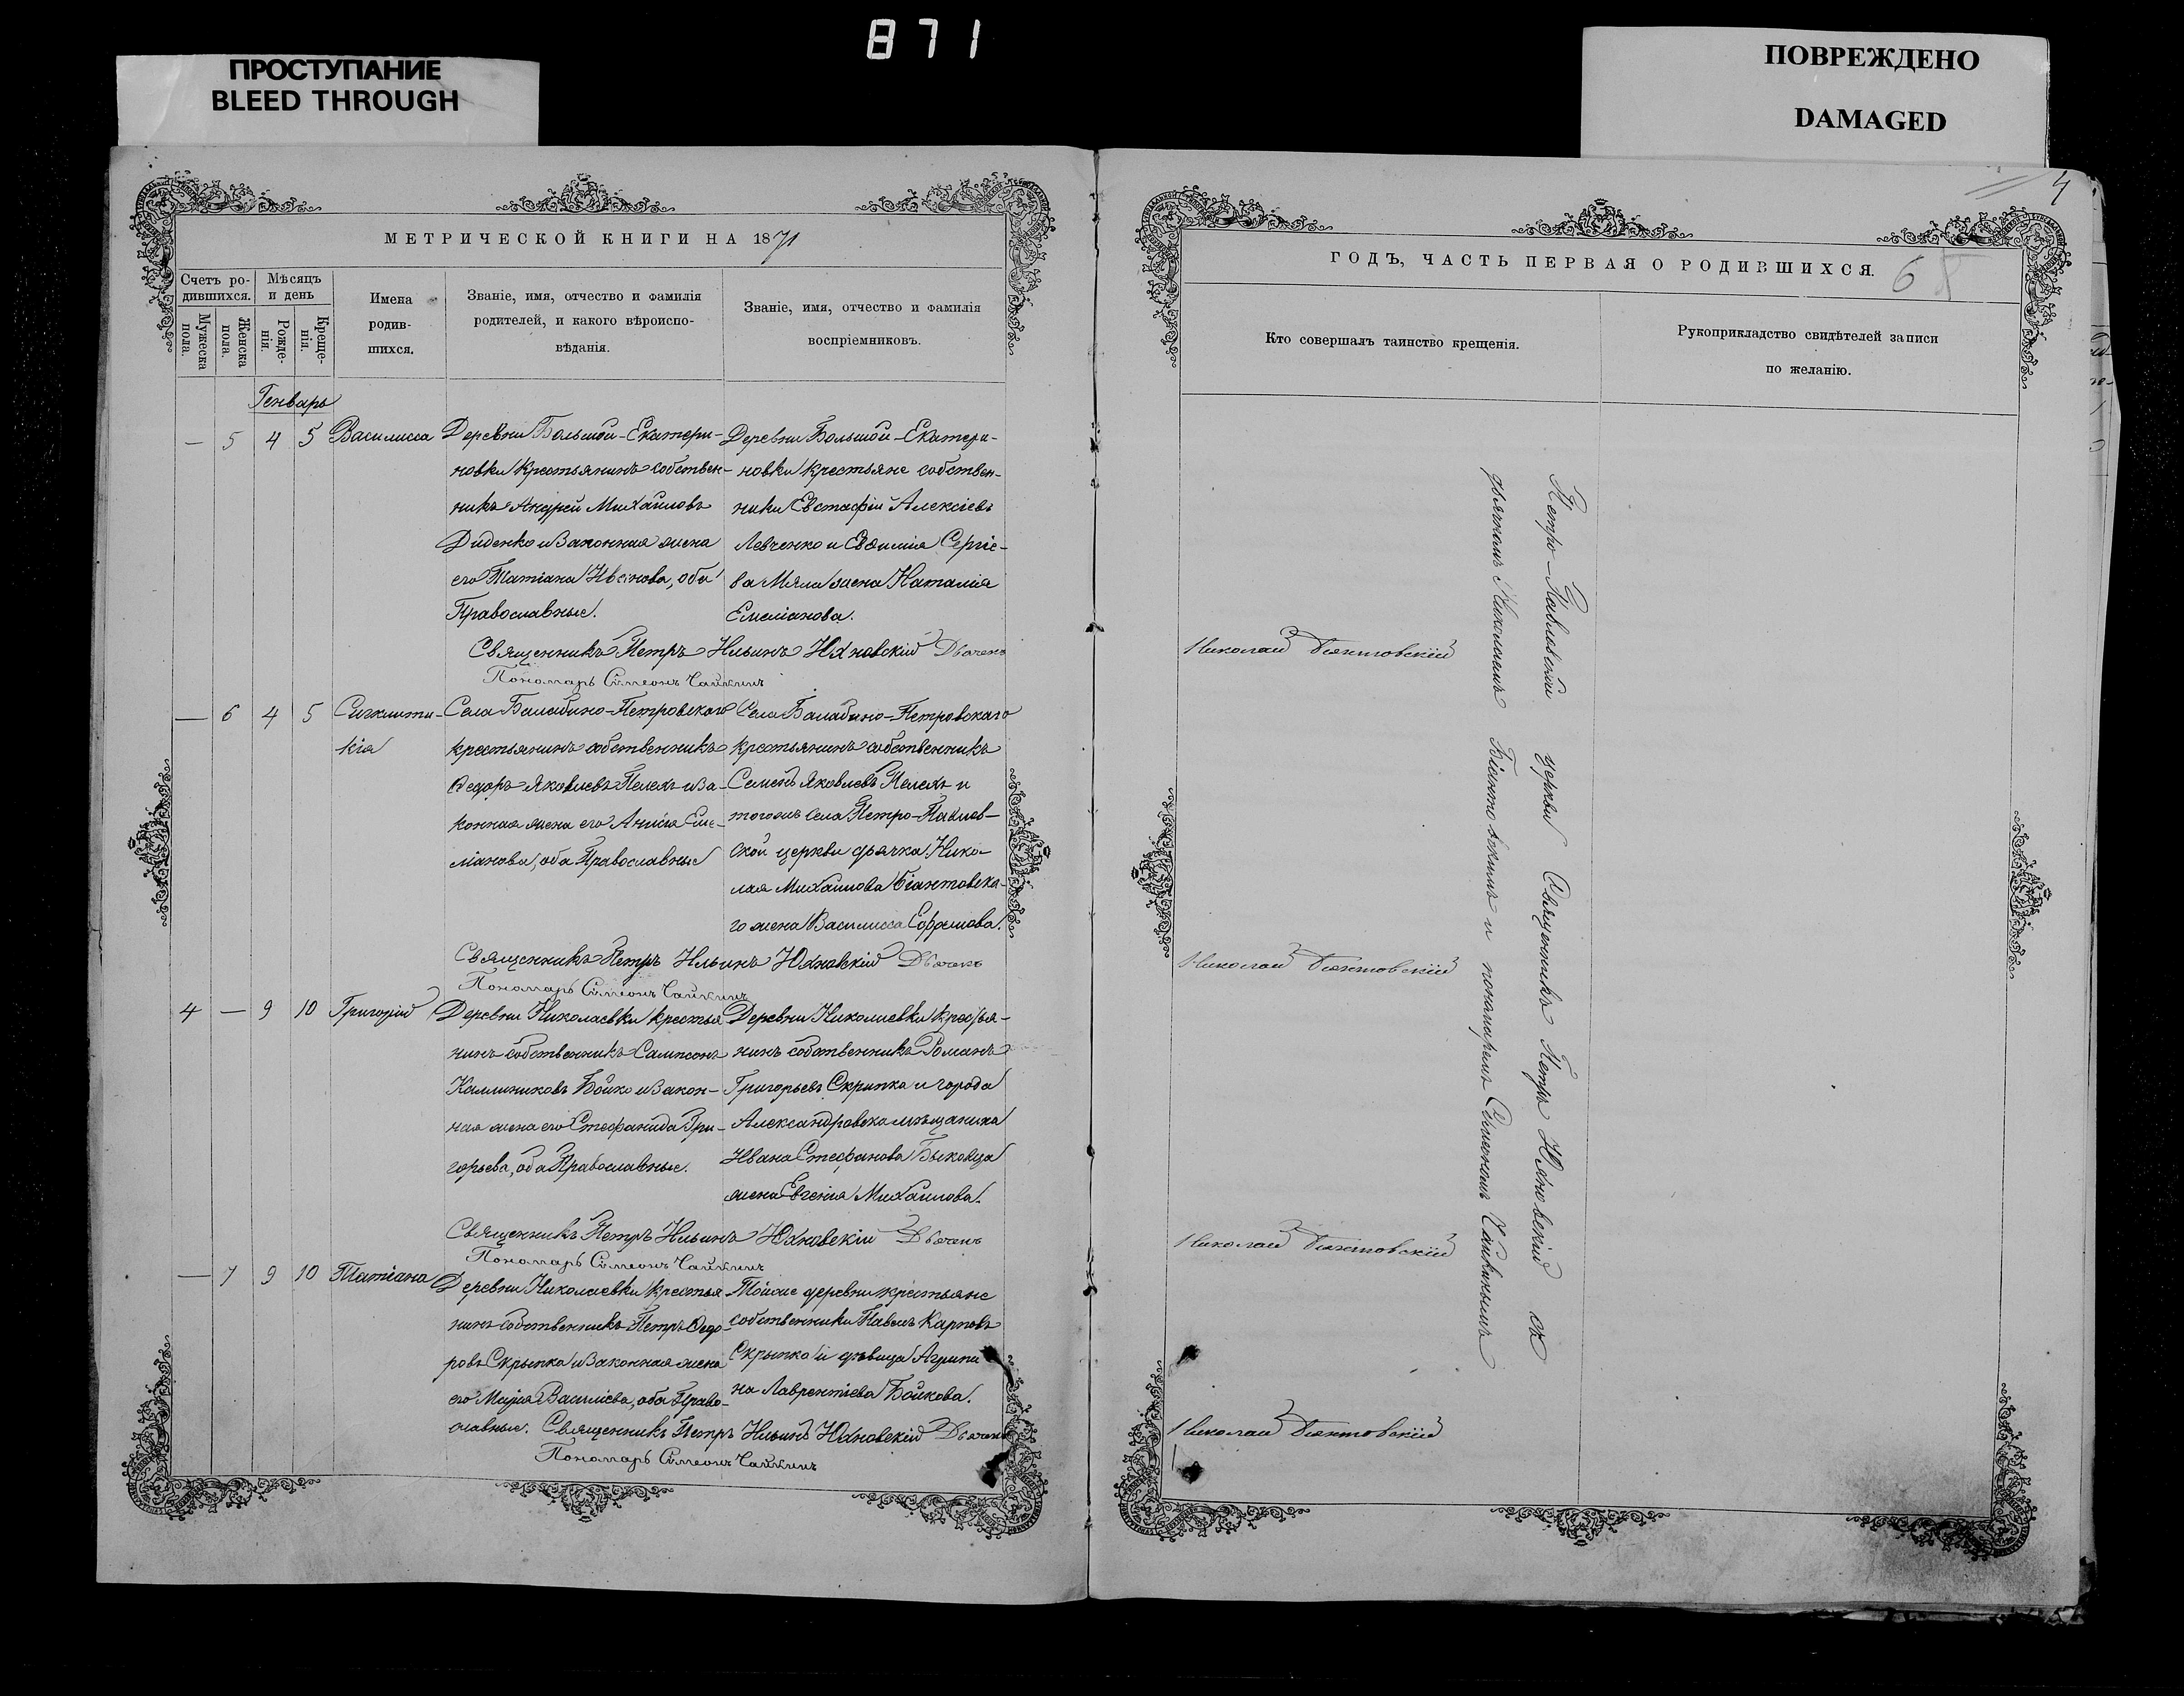 871
ПРОСТУПАНИЕ
BLEED THROUGH
ПОВРЕЖДЕНО
DAMAGED
МЕТРИЧЕСКОЙ КНИГИ НА 1871
Счетъ ро-
дившихся.
Мужеска
пола.
Женска
пола.
Мѣсяцъ
и день
Рожде-
нія.
Креще-
нія.
Имена
родив-
шихся.
Званіе, имя, отчество и фамилія
родителей, и какого вѣроиспо-
вѣданія.
Званіе, имя, отчество и фамилія
воспріемниковъ.
Генварь
— 5 4 5 Василисса
Деревни Большой-Екатери-
новки крестьянинъ собствен-
никъ Андрей Михайловъ
Диденко и законная жена
его Татіана Ивсікова, оба
Православные.
Деревни Большой-Екатери-
новки крестьяне собствен-
ники Евстафій Алексіевъ
Левченко и Евѳимія Сергіе-
ва жена Наталія
Емеліанова.
Священникъ Петръ Ильинъ Юхновскій Дьячекъ
Пономарь Сѵмеонъ Чайкинъ
— 6 4 5 Сигклити-
кія
Села Балабино-Петровскаго
крестьянинъ собственникъ
Ѳедоръ Яковлевъ Пелехъ и за-
конная жена его Анисія Еме-
ліанова, оба Православные
Села Балабино-Петровскаго
крестьянинъ собственникъ
Семенъ Яковлевъ Пелехъ и
тогожъ села Петро-Павлов-
ской церкви дьячка Нико-
лая Михайлова Біантовска-
го жена Василисса Ефремова.
Священникъ Петръ Ильинъ Юхновскій Дьячекъ
Пономарь Сѵмеонъ Чайкинъ
4 — 9 10 Григорій
Деревни Николаевки крестья-
нинъ собственникъ Сампсонъ
Каллиниковъ Бойко и закон-
ная жена его Стефанида Гри-
горьева, оба Православные.
Деревни Николаевки крестья-
нинъ собственникъ Романъ
Григорьевъ Скрипка и города
Александровска мѣщанина
Ивана Стефанова Быковца
жена Евгенія Михайлова.
Священникъ Петръ Ильинъ Юхновскій Дьячекъ
Пономарь Сѵмеонъ Чайкинъ
— 7 9 10 Татіана
Деревни Николаевки крестья-
нинъ собственникъ Петръ Ѳедо-
ровъ Скрыпка и законная жена
его Марія Василіева, оба Право-
славные.
Тойже деревни крестьяне
собственники Павелъ Карповъ
Скрыпка и дѣвица Агрипи-
на Лаврентіева Бойкова.
Священникъ Петръ Ильинъ Юхновскій Дьячекъ
Пономарь Сѵмеонъ Чайкинъ
4
ГОДЪ, ЧАСТЬ ПЕРВАЯ О РОДИВШИХСЯ.
6
Кто совершалъ таинство крещенія.
Рукоприкладство свидѣтелей записи
по желанію.
Петро-Павловской церкви Священникъ Петръ Юхновскій съ
дьячкомъ Николаемъ Біантовскимъ и пономаремъ Симеономъ Чайкинымъ
Николай Біянтовскій
Николай Біянтовскій
Николай Біянтовскій
Николай Біянтовскій